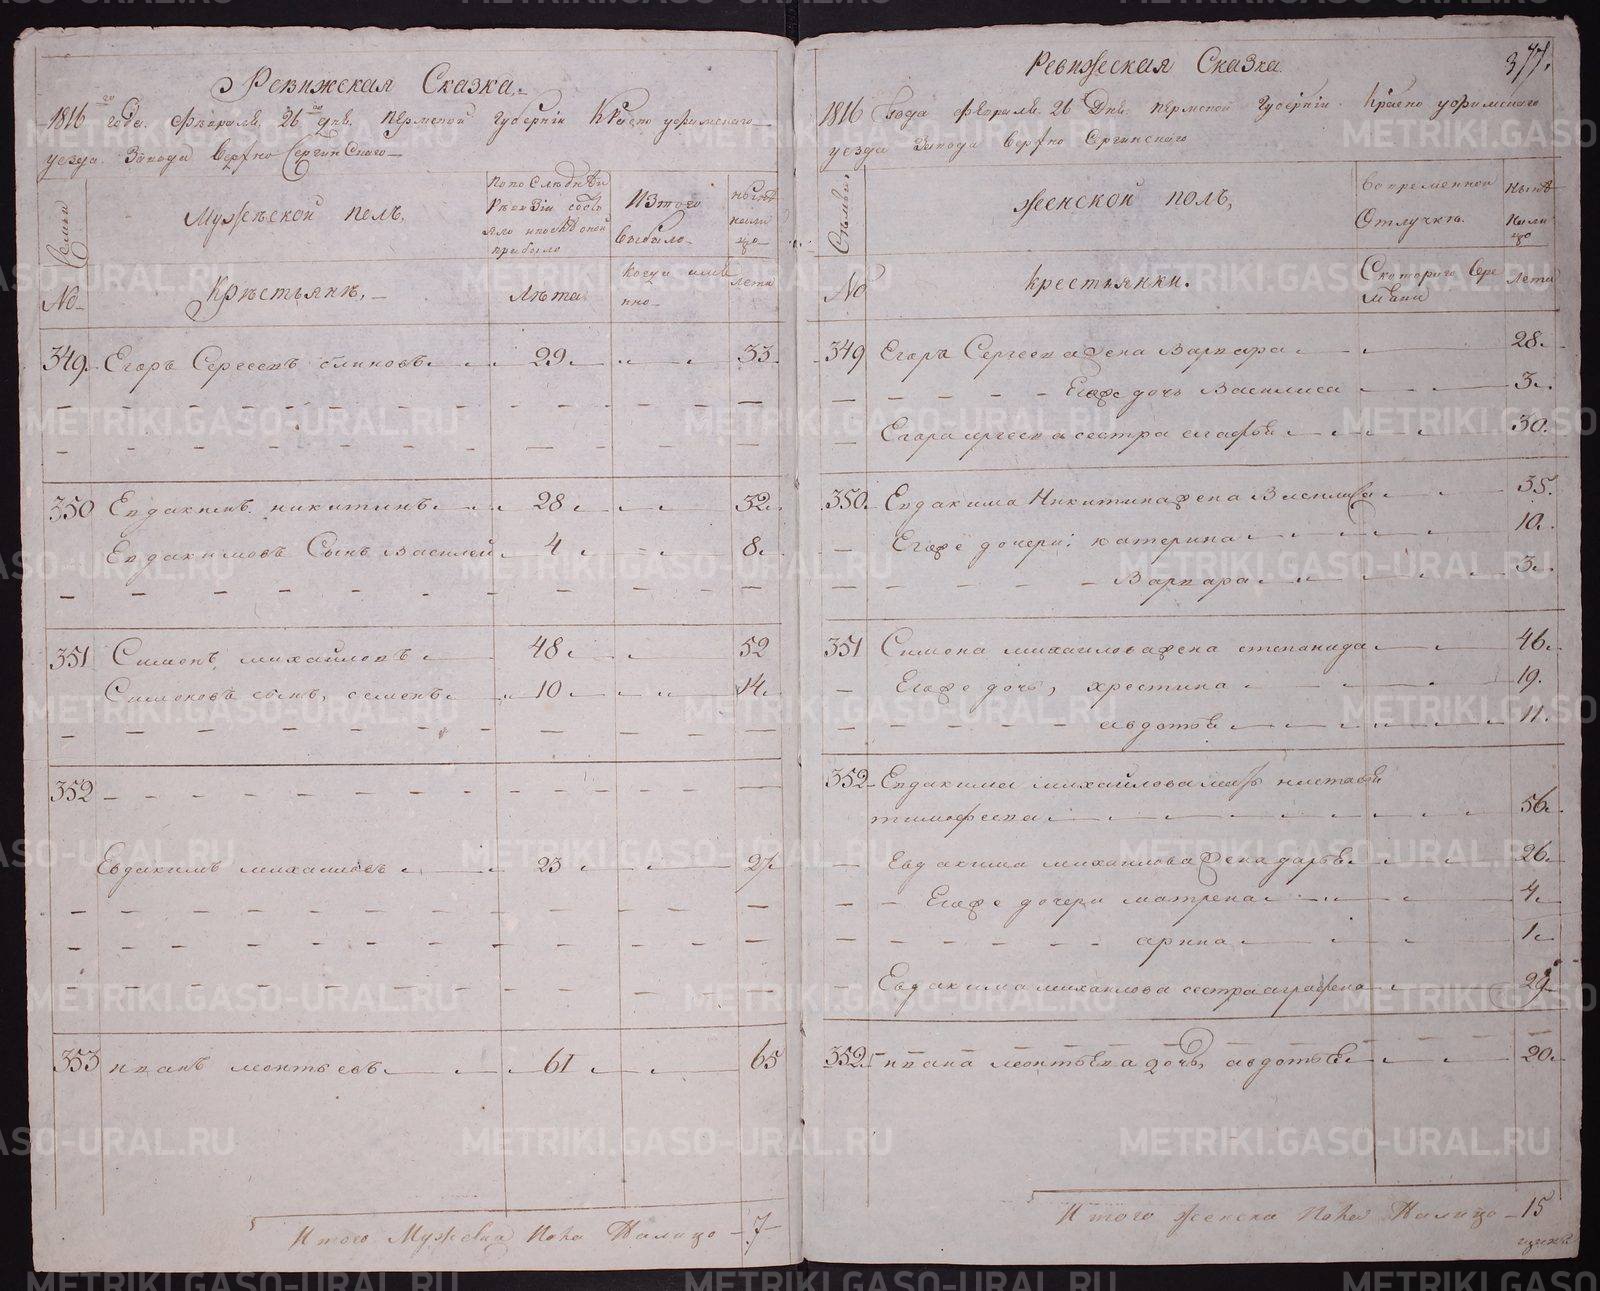 Ревижская Сказка.
1816го года. Февраля. 26го дня. Пермской Губернiи Красно уфимского
уезда Завода Верхно Сергинского
Семьи
Мужеской полъ,
По последней
Ревизiи состо
яло и после оной
прибыло
Из того
выбыло
ныне
на ли
цо
№
Крестьяне,
Лета
Когда имя
нно
Лета
349. Егоръ Сергеевъ блиновъ 29 33.
350 Евдакимъ никитинъ 28 32.
Евдакимовъ Сынъ Василей 4 8.
351 Симонъ михайловъ 48 52
Симоновъ сынъ, семенъ 10 14.
352
Евдакимъ михаиловъ 23 27
353 иванъ леонтьевъ 61 65
Итого Мужеска Пола Налицо 7
Ревижеская Сказка
377.
1816 Года февраля. 26 Дня. пермской Губернiи Красно уфимского
уезда Завода Верхно Сергинского
Семьи.
женской полъ,
Во временной
Отлучке.
ныне
нали
цо
№
крестьянки.
С которого вре
мени
Лета
349 Егора Сергеева жена Варвара 28.
Егоже дочь Василиса 3.
Егора сергеева сестра агафья 30.
350. Евдакима Никитина жена Василиса 35.
Егоже дочери: катерина 10.
Варвара 3.
351 Симона михаилова жена степанида 46.
Егоже дочь, христина 19.
авдотья 11.
352 Евдакима михайлова мать настасья
тимофеева 56.
Евдакима михаилова жена дарья 26.
Егоже дочери матрена 4.
арина 1.
Евдакима михаилова сестра аграфена 29.
352. ивана леонтьева дочь, авдотья 20.
Итого женска Пола Налицо 15